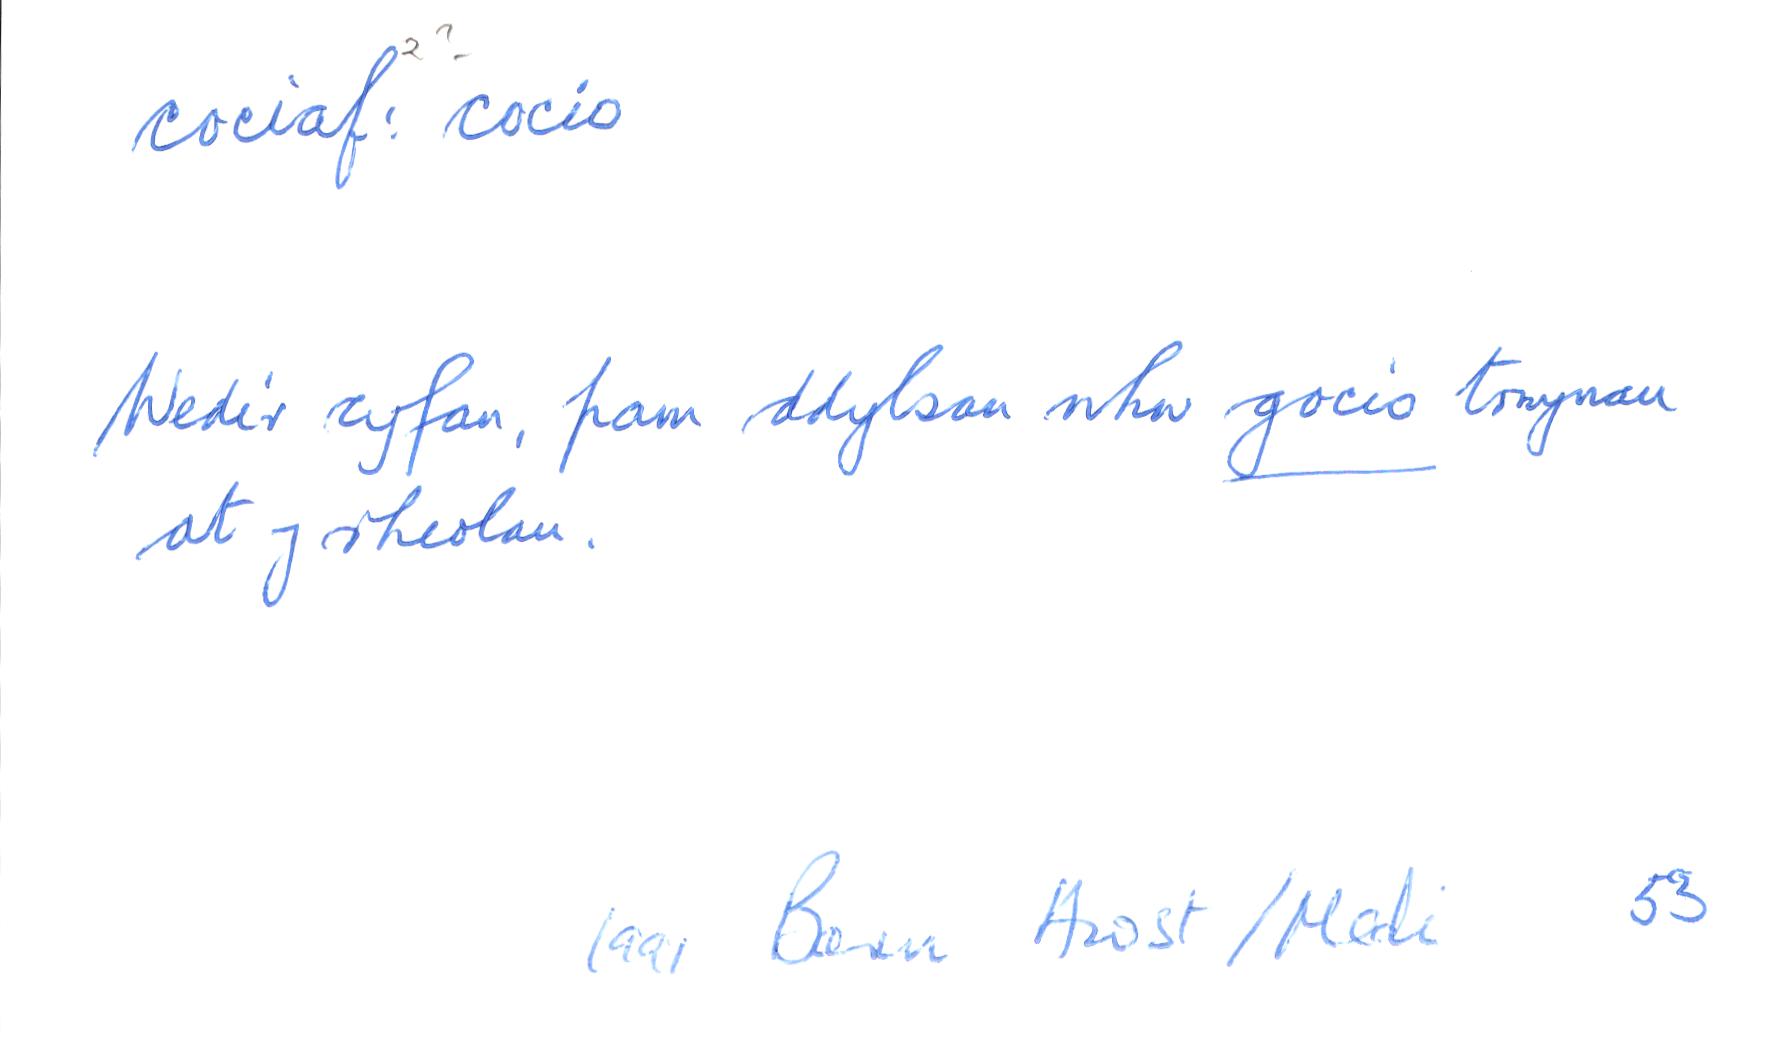 cociaf²?: cocio
Wedi'r cyfan, pam ddylsau nhw gocio trwynau
at y rheolau.
1991 Barn Awst / Medi 53